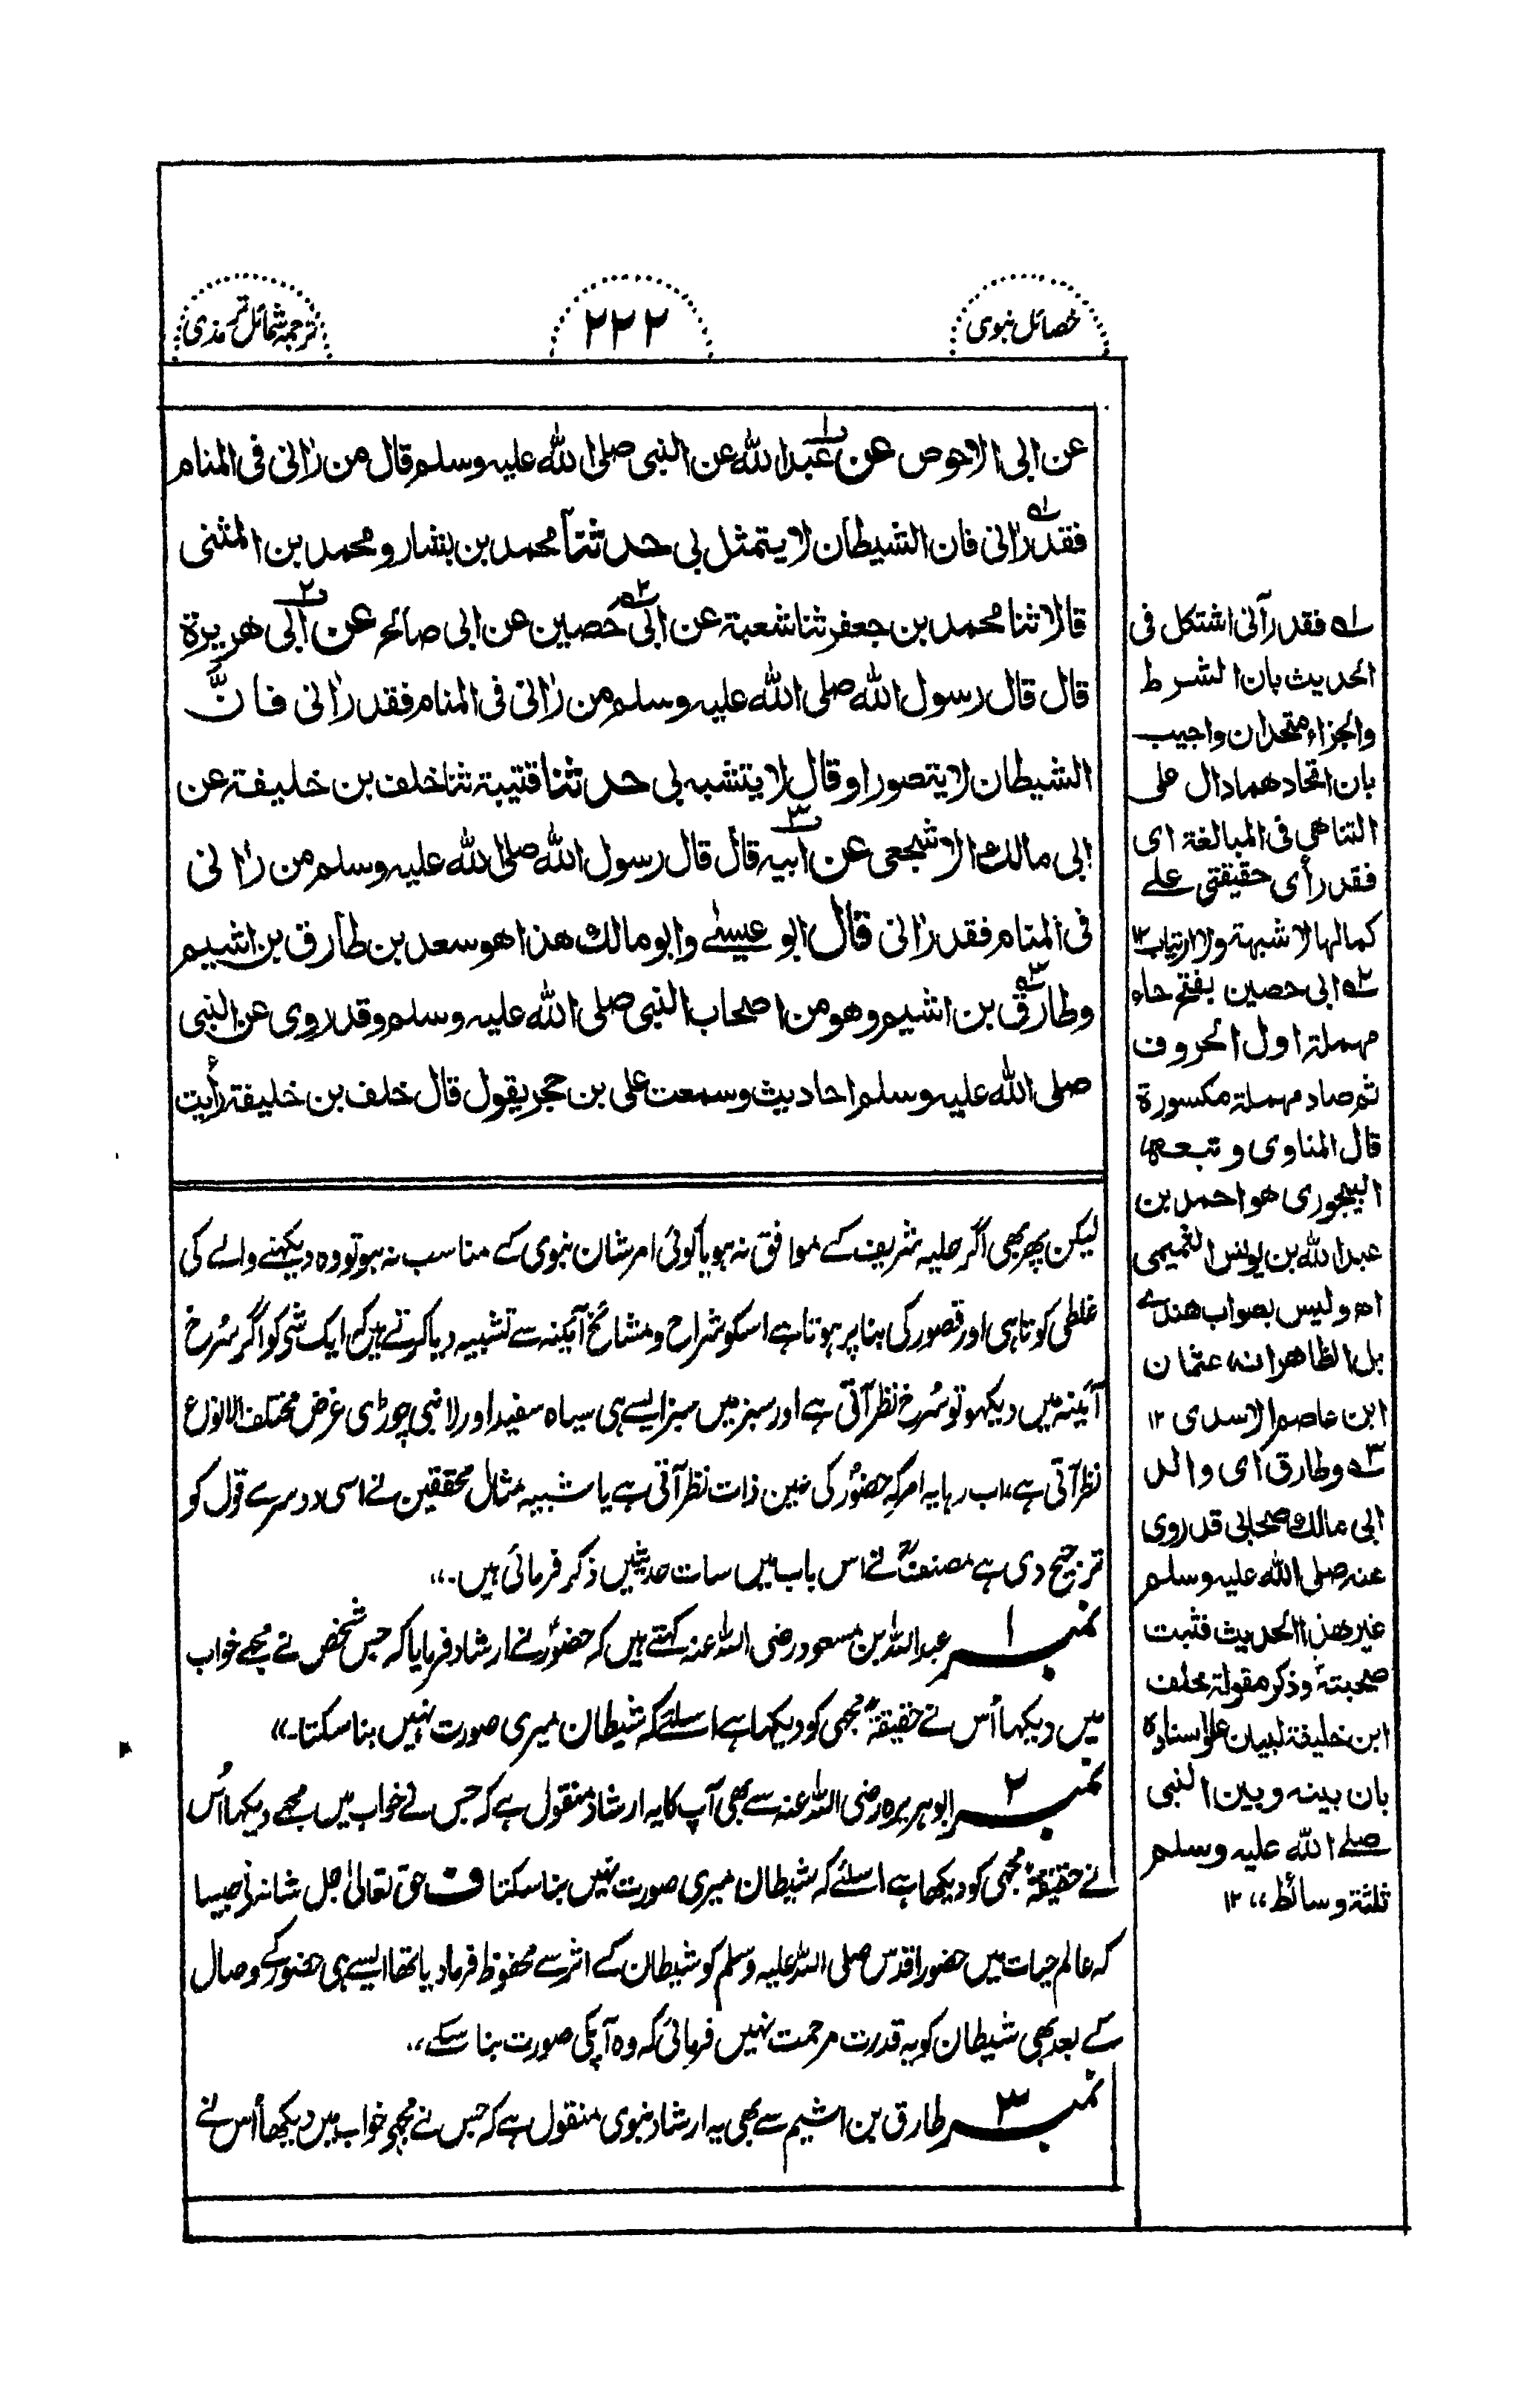 خصائل نبوی
۲۲۲
ترجمہ شمائل ترمذی
عن ابی الاحوص عن عبد الله عن النبی صلی الله علیه وسلم قال من رٰانی فی المنام
فقد رٰانی فان الشیطان لا یتمثل بی حدثنا محمد بن بشار و محمد بن المثنی
قالا ثنا محمد بن جعفر ثنا شعبة عن ابی حصین عن ابی صالح عن ابی هریرة
قال قال رسول الله صلی الله علیه وسلم من رٰانی فی المنام فقد رٰانی فانَّ
الشیطان لا یتصور او قال لا یتشبه بی حدثنا قتیبة ثنا خلف بن خلیفة عن
ابی مالک الاشجعی عن ابیه قال قال رسول الله صلی الله علیه وسلم من رٰانی
فی المنام فقد رٰانی قال ابو عیسٰے وابو مالک هذا هو سعد بن طارق بن اشیم
وطارق بن اشیم وهو من اصحاب النبی صلی الله علیه وسلم وقد روی عن النبی
صلی الله علیه وسلم احادیث وسمعت علی بن حجر یقول قال خلف بن خلیفة رأیت
لیکن پھر بھی اگر حلیہ شریف کے موافق نہ ہو یا کوئی امر شان نبوی کے مناسب نہ ہو تو وہ دیکھنے والے کی
غلطی کوتاہی اور قصور کی بنا پر ہوتا ہے اسکو شراح و مشائخ آئینہ سے تشبیہ دیا کرتے ہیں کہ ایک شی کو اگر سُرخ
آئینہ میں دیکھو تو سُرخ نظر آتی ہے اور سبز میں سبز ایسے ہی سیاہ سفید اور لانبی چوڑی غرض مختلف الانواع
نظر آتی ہے، اب رہا یہ امر کہ حضورؐ کی عین ذات نظر آتی ہے یا شبیہ مثال محققین نے اسی دوسرے قول کو
ترجیح دی ہے مصنفؒ نے اس باب میں سات حدیثیں ذکر فرمائی ہیں۔،،
نمبر ۱ عبداللہ بن مسعود رضی اللہ عنہ کہتے ہیں کہ حضورؐ نے ارشاد فرمایا کہ جس شخص نے مجھے خواب
میں دیکھا اُس نے حقیقۃً مجھی کو دیکھا ہے اسلئے کہ شیطان میری صورت نہیں بنا سکتا۔،،
نمبر ۲ ابوہریرہ رضی اللہ عنہ سے بھی آپ کا یہ ارشاد منقول ہے کہ جس نے خواب میں مجھے دیکھا اُس
نے حقیقۃً مجھی کو دیکھا ہے اسلئے کہ شیطان میری صورت نہیں بنا سکتا ف حق تعالیٰ جل شانہ نے جیسا
کہ عالم حیات میں حضور اقدس صلی اللہ علیہ وسلم کو شیطان کے اثر سے محفوظ فرما دیا تھا ایسے ہی حضورؐ کے وصال
کے بعد بھی شیطان کو یہ قدرت مرحمت نہیں فرمائی کہ وہ آپکی صورت بنا سکے،،
نمبر ۳ طارق بن اشیم سے بھی یہ ارشاد نبوی منقول ہے کہ جس نے مجھے خواب میں دیکھا اُس نے
لے فقد رآنی اشتکل فی
الحدیث بان الشرط
والجزاء متحدان واجیب
بان اتحادهما دال علی
التناهی فی المبالغة ای
فقد رأی حقیقتی علے
کمالها لا شبهة ولا ارتیاب ۱۲
۲ے ابی حصین بفتح حاء
مهملة اول الحروف
ثم صاد مهملة مکسورة
قال المناوی و تبعه
البیجوری هو احمد بن
عبد الله بن یونس التمیمی
اه ولیس بصواب عندے
بل الظاهر انه عثمان
ابن عاصم الاسدی ۱۲
۳ے وطارق ای والد
ابی مالک صحابی قد روی
عنه صلی الله علیه وسلم
غیر هذا الحدیث فثبت
صحبته وذکر مقولة خلف
ابن خلیفة لبیان علو اسناده
بان بینه وبین النبی
صلے الله علیه وسلم
ثلثة وسائط،، ۱۲